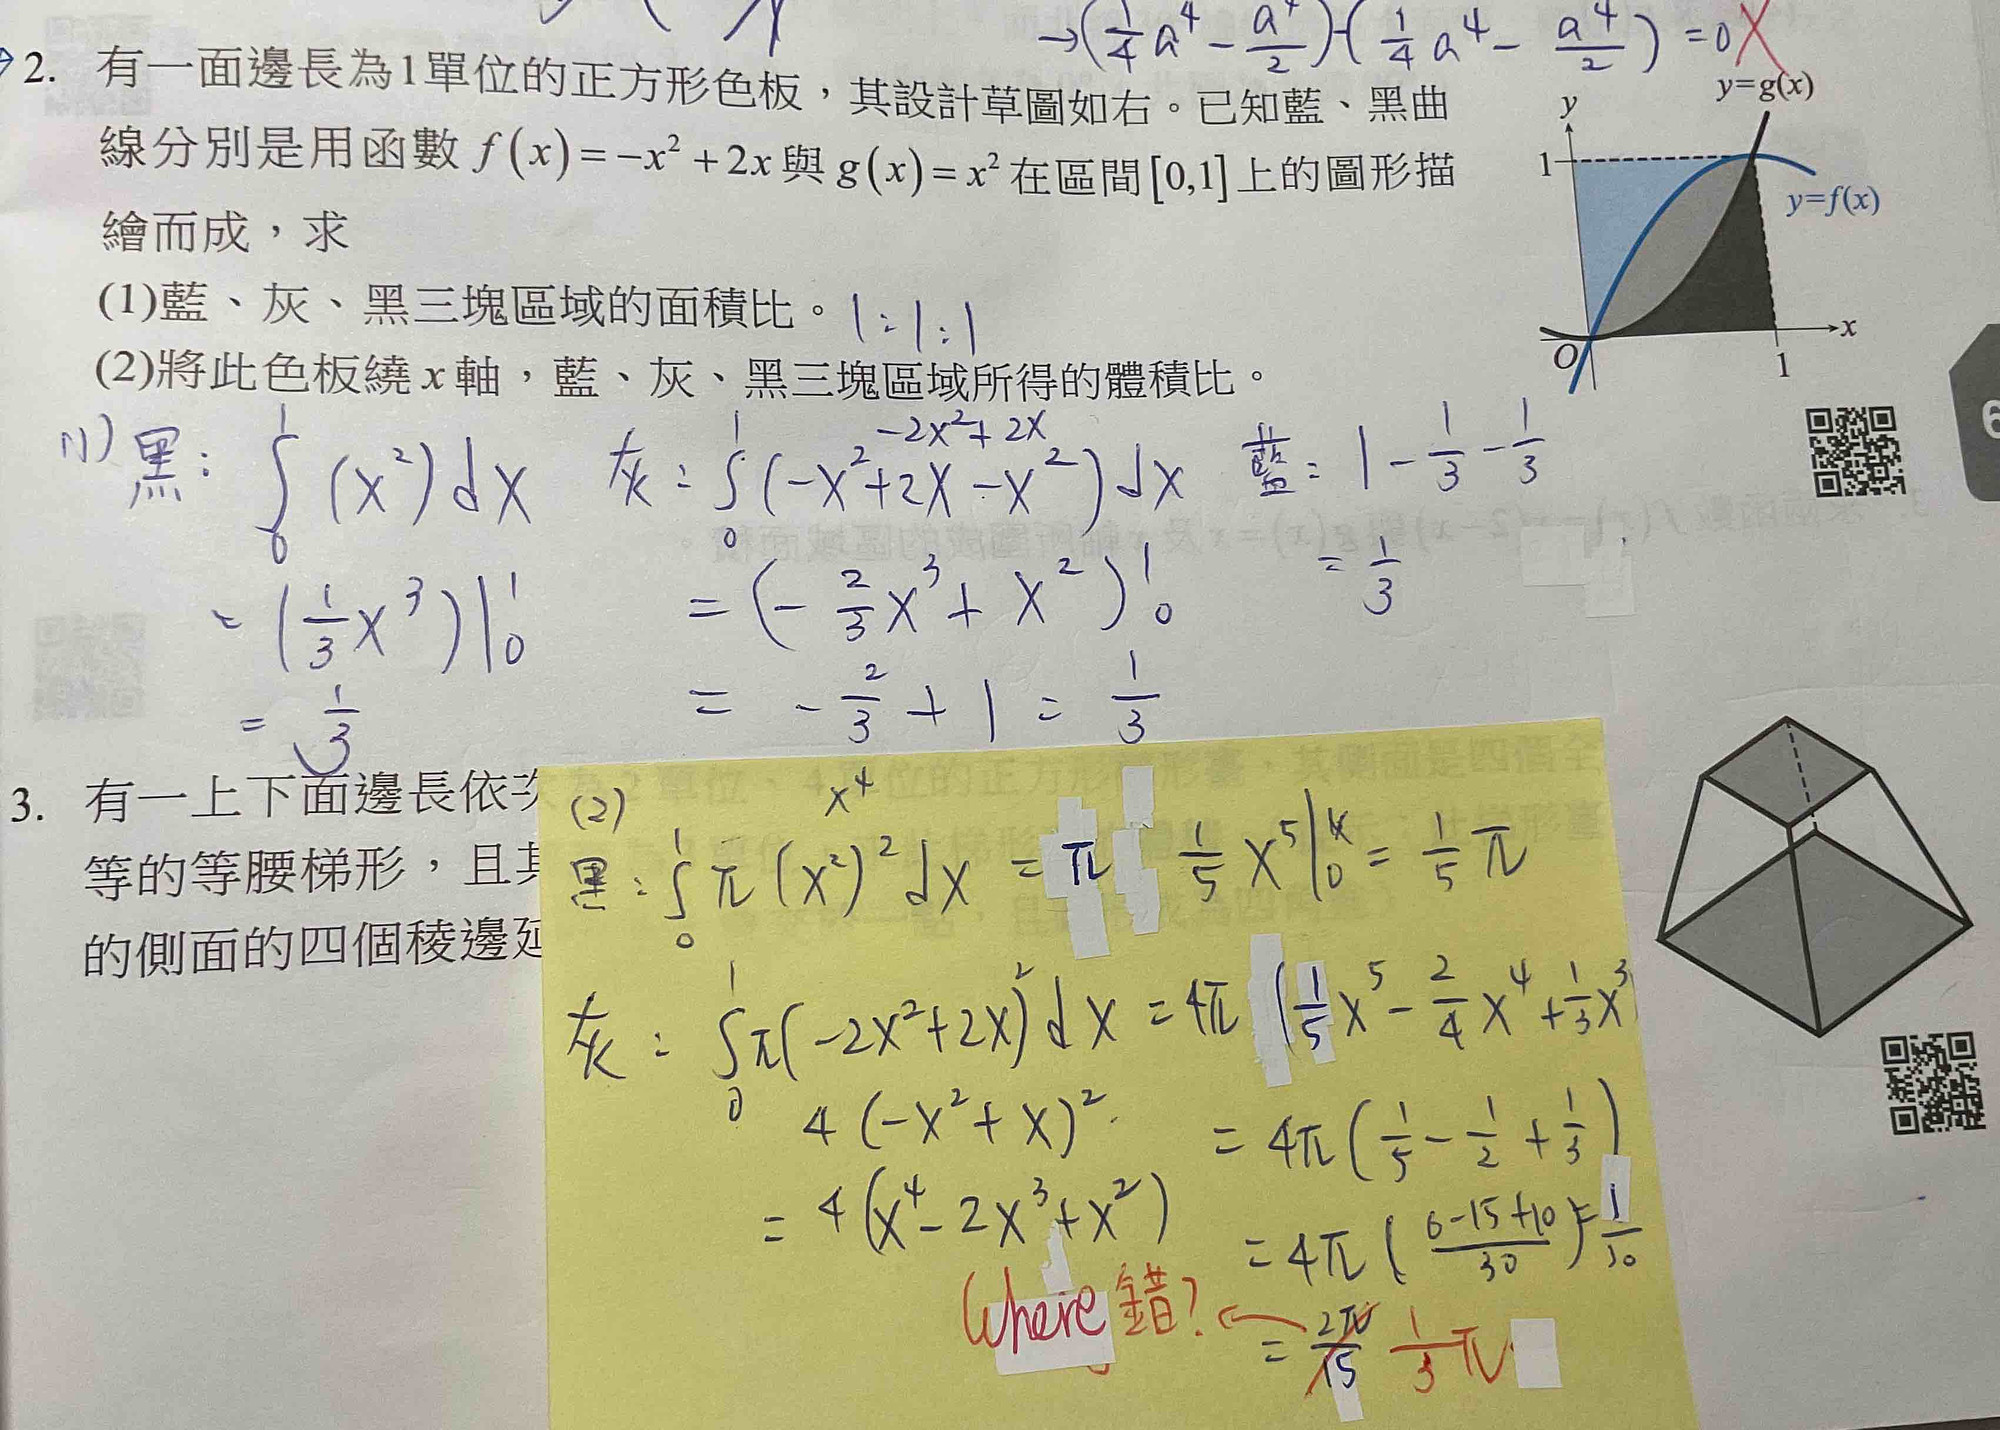 →(1/4 a⁴ - a⁴/2)-(1/4 a⁴ - a⁴/2) = 0 X
2. 有一面邊長為1單位的正方形色板，其設計草圖如右。已知藍、黑曲
線分別是用函數 f(x)=-x²+2x 與 g(x)=x² 在區間[0,1]上的圖形描
繪而成，求
(1)藍、灰、黑三塊區域的面積比。 1:1:1
(2)將此色板繞 x 軸，藍、灰、黑三塊區域所得的體積比。
y=g(x)
y
1
y=f(x)
O
1
x
6
(1) 黑: ∫₀¹ (x²) dx
= (1/3 x³)|₀¹
= 1/3
灰: ∫₀¹ (-x²+2x-x²) dx
-2x²+2x
= (-2/3 x³ + x²)|₀¹
= -2/3 + 1 = 1/3
藍: 1 - 1/3 - 1/3
= 1/3
3. 有一上下面邊長依次
等的等腰梯形，且其
的側面的四個稜邊延
(2)
x⁴
黑: ∫₀¹ π(x²)² dx = π 1/5 x⁵|₀ = 1/5 π
灰: ∫₀¹ π(-2x²+2x)² dx = 4π (1/5 x⁵ - 2/4 x⁴ + 1/3 x³
4(-x²+x)²
= 4(x⁴-2x³+x²)
= 4π(1/5 - 1/2 + 1/3)
= 4π((6-15+10)/30) = 1/30
= 2π/15 1/3 π
Where 錯?